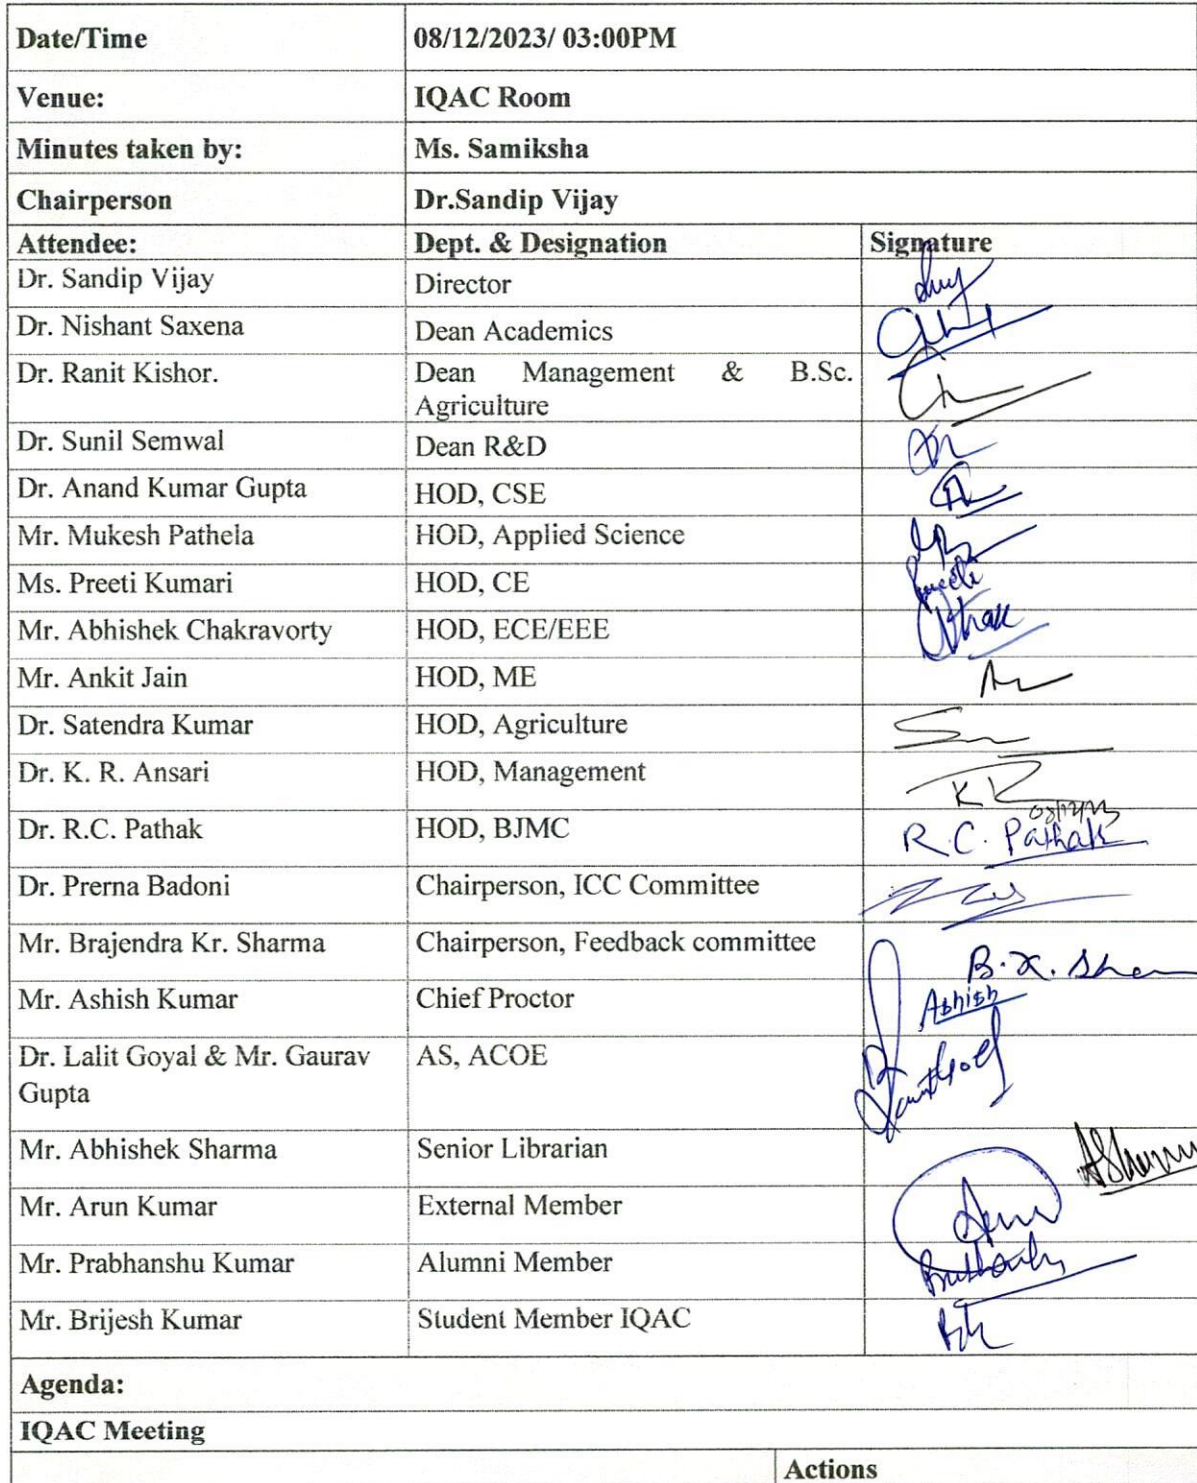 Date/Time 08/12/2023/ 03:00PM
Venue: IQAC Room
Minutes taken by: Ms. Samiksha
Chairperson Dr.Sandip Vijay
Attendee: Dept. & Designation Signature
Dr. Sandip Vijay Director
Dr. Nishant Saxena Dean Academics
Dr. Ranit Kishor. Dean Management & B.Sc.
Agriculture
Dr. Sunil Semwal Dean R&D
Dr. Anand Kumar Gupta HOD, CSE
Mr. Mukesh Pathela HOD, Applied Science
Ms. Preeti Kumari HOD, CE
Mr. Abhishek Chakravorty HOD, ECE/EEE
Mr. Ankit Jain HOD, ME
Dr. Satendra Kumar HOD, Agriculture
Dr. K. R. Ansari HOD, Management
Dr. R.C. Pathak HOD, BJMC R.C. Pathak
Dr. Prerna Badoni Chairperson, ICC Committee
Mr. Brajendra Kr. Sharma Chairperson, Feedback committee
Mr. Ashish Kumar Chief Proctor Ashish
Dr. Lalit Goyal & Mr. Gaurav AS, ACOE
Gupta
Mr. Abhishek Sharma Senior Librarian
Mr. Arun Kumar External Member
Mr. Prabhanshu Kumar Alumni Member
Mr. Brijesh Kumar Student Member IQAC
Agenda:
IQAC Meeting
Actions